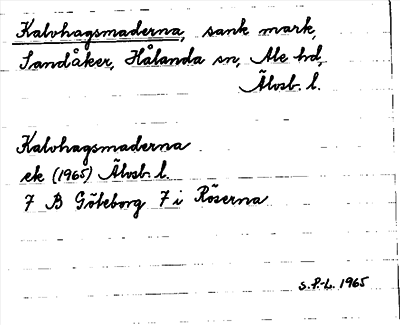 Kalvhagsmaderna, sank mark,
Sandåker, Hålanda sn, Ale hd,
Älvsb. l.
Kalvhagsmaderna
ek (1965) Älvsb. l.
7 B Göteborg 7 i Röserna
S. P.-L. 1965